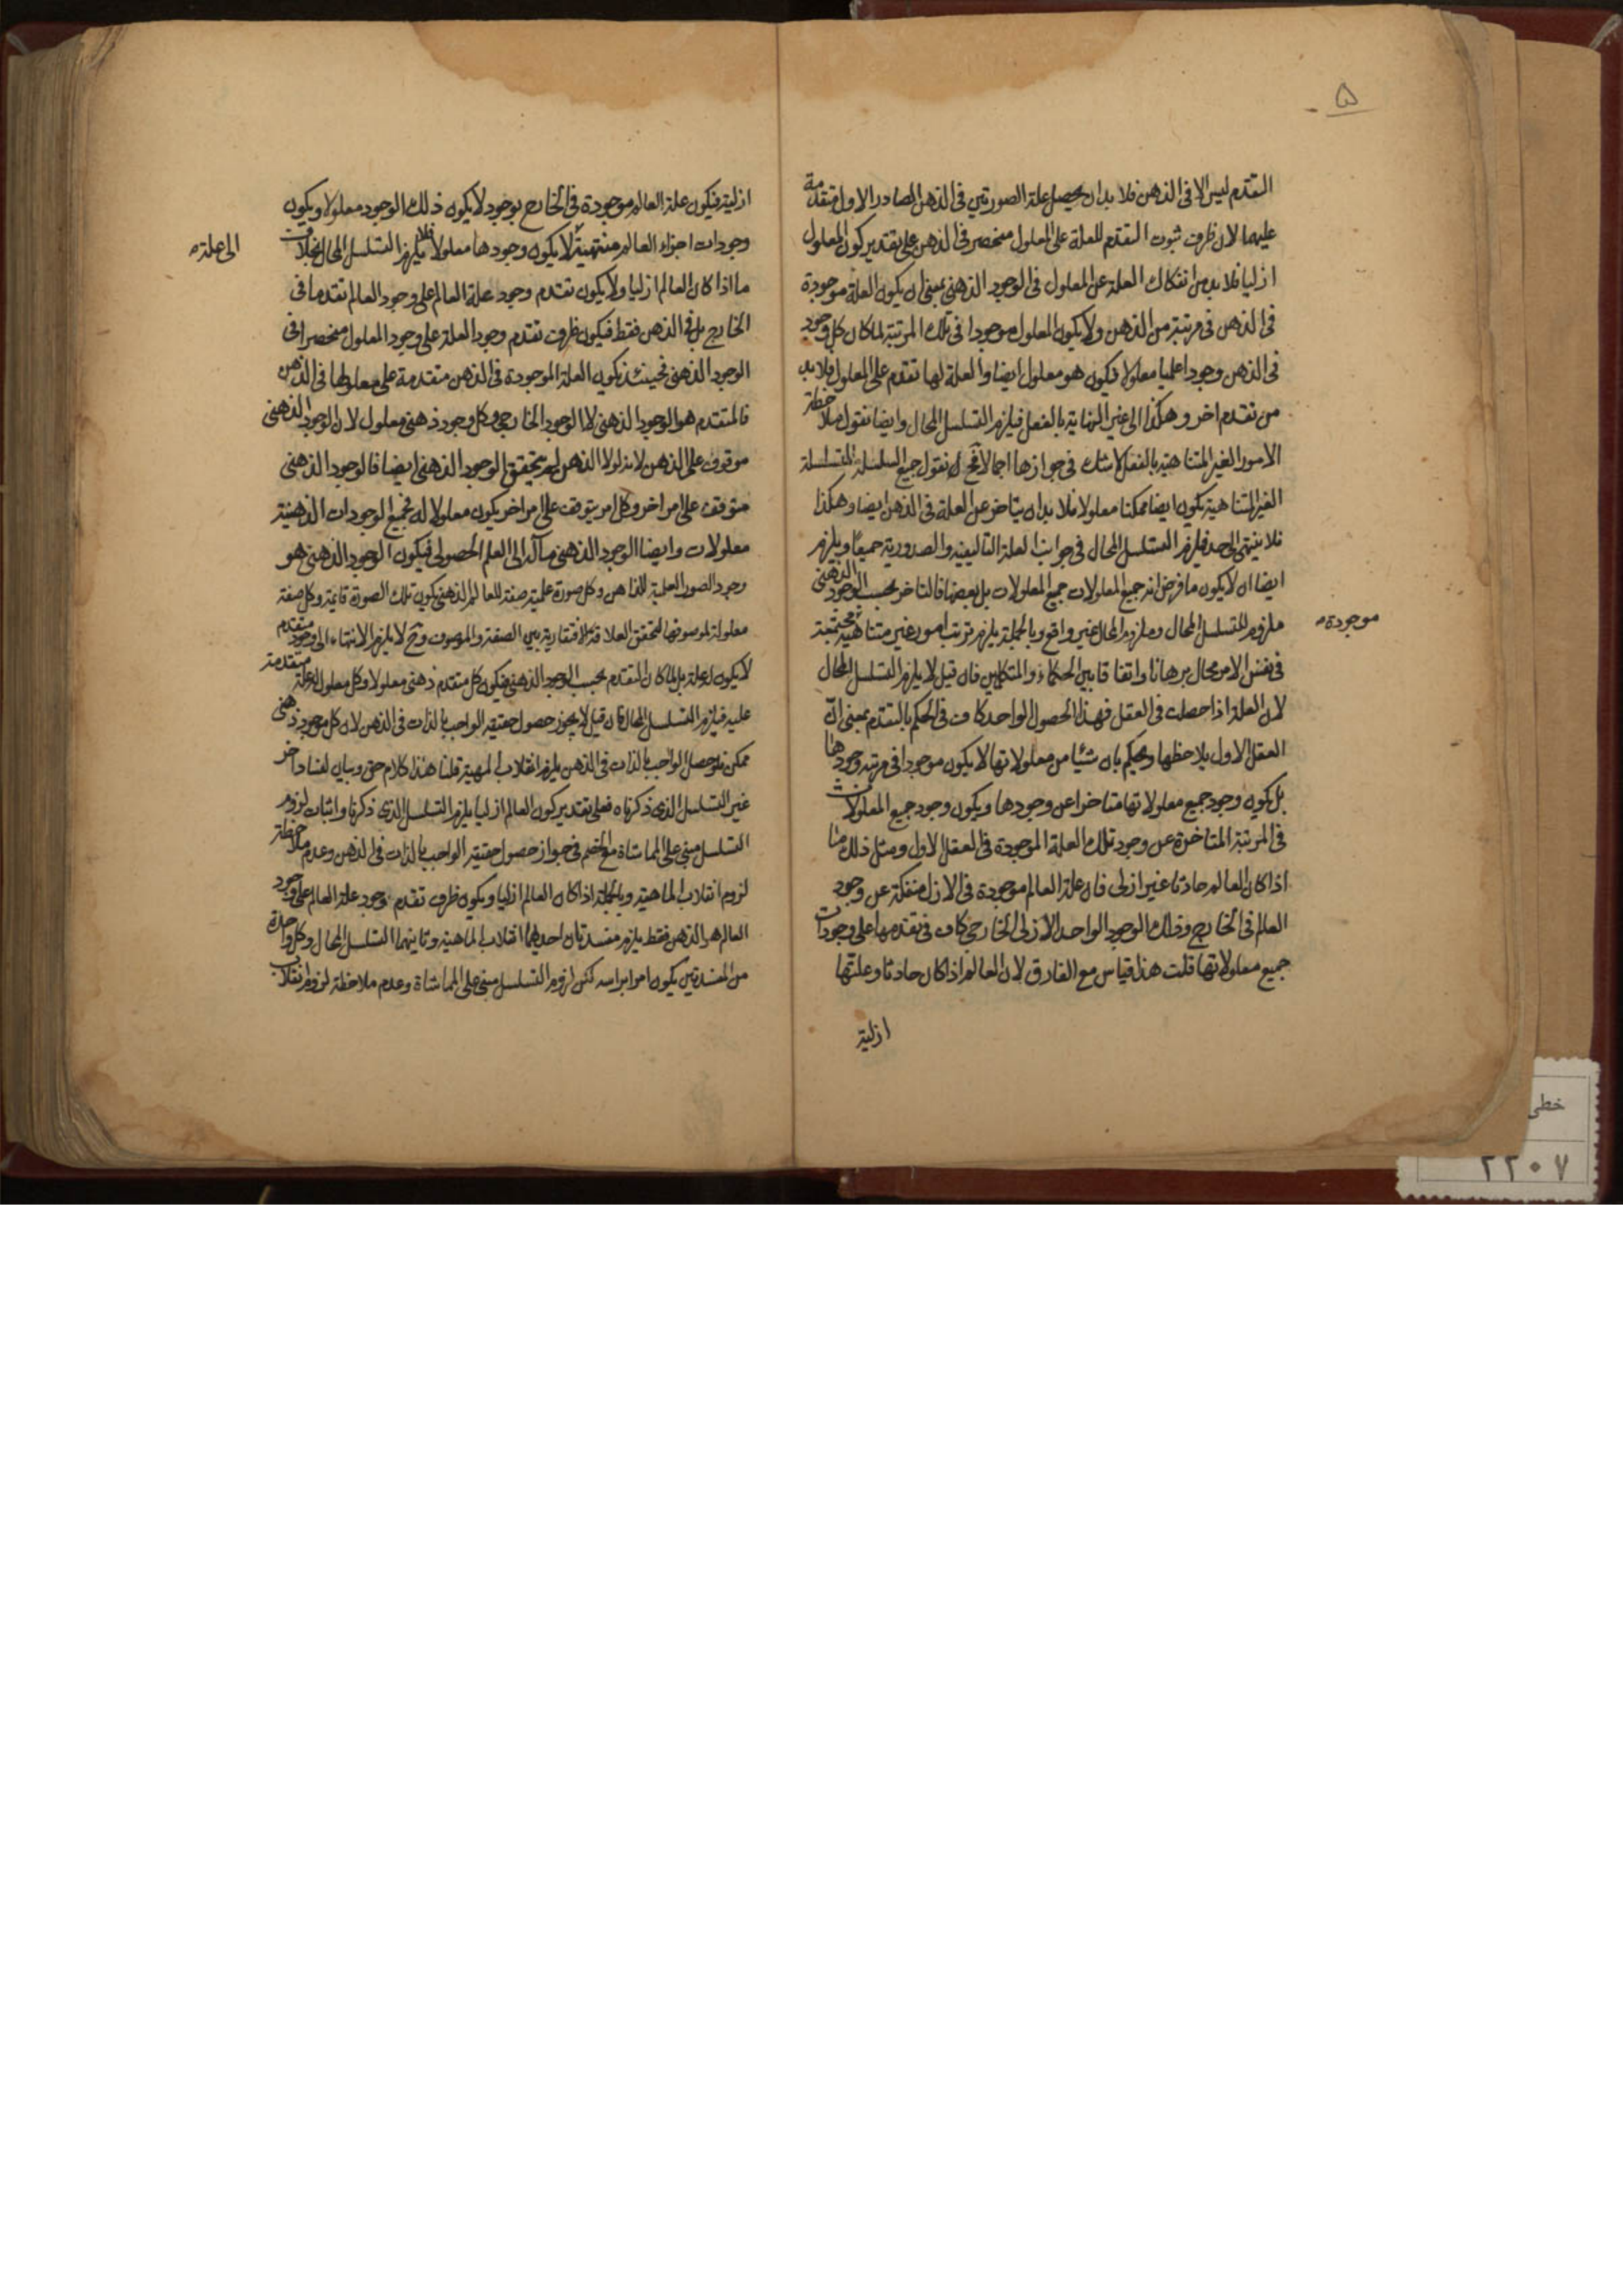 ۵
التقدم ليس الا فى الذهن فلا بد ان يحصل علة الصورتين فى الذهن الصادر الاول متقدمة
عليهما لان ظرف ثبوت التقدم للعلة على المعلول منحصر فى الذهن على تقدير كون المعلول
ازليا فلا بد من انفكاك العلة عن المعلول فى الوجود الذهنى بمعنى ان يكون العلة موجودة
فى الذهن فى مرتبة من الذهن ولا يكون المعلول موجودا فى تلك المرتبة لما كان كل وجود
فى الذهن وجودا علميا معلولا فيكون هو معلول ايضا والعلة لها تقدم على المعلول فلا بد
من تقدم اخر وهكذا الى غير النهاية بالفعل فيلزم التسلسل المحال وايضا نقول ملاحظة
الامور الغير المتناهية بالفعل لا شك فى جوازها اجمالا فح نقول جميع السلسلة المتسلسلة
الغير المتناهية يكون ايضا ممكنا معلولا فلا بد ان يتاخر عن العلة فى الذهن ايضا وهكذا
فلا ينتهى الى حد فيلزم التسلسل المحال فى جوانب العلة التاليفية والصدورية جميعا ويلزم
ايضا ان لا يكون ما فرض انه جميع المعلولات جميع المعلولات بل بعضها فالتاخر بحسب الوجود الذهنى
ملزوم للتسلسل المحال وملزوم المحال غير واقع وبالجملة يلزم ترتب امور غير متناهية مجتمعة
موجودة
فى نفس الامر محال برهانا واتفاقا بين الحكماء والمتكلمين فان قيل لا يلزم التسلسل المحال
لان العلة اذا حصلت فى العقل فهذا الحصول الواحد كاف فى الحكم بالتقدم بمعنى ان
العقل الاول يلاحظها ويحكم بان شيئا من معلولاتها لا يكون موجودا فى مرتبة وجودها
بل يكون وجود جميع معلولاتها متاخرا عن وجودها ويكون وجود جميع المعلولات
فى المرتبة المتاخرة عن وجود تلك العلة الموجودة فى العقل الاول ومثل ذلك
اذا كان العالم حادثا غير ازلى فان علة العالم موجودة فى الازل منفكة عن وجود
العالم فى الخارج وذلك الوجود الواحد الازلى الخارجى كاف فى تقدمها على وجودات
جميع معلولاتها قلت هذا قياس مع الفارق لان العالم اذا كان حادثا وعلتها
ازلية
ازلية فيكون علة العالم موجودة فى الخارج بوجود لا يكون ذلك الوجود معلولا ويكون
وجودات اجزاء العالم منتهية لا يكون وجودها معلولا فلا يلزم التسلسل المحال بخلاف
الى علة
ما اذا كان العالم ازليا ولا يكون تقدم وجود علة العالم على وجود العالم تقدما فى
الخارج بل فى الذهن فقط فيكون ظرف تقدم وجود العلة على وجود المعلول منحصرا فى
الوجود الذهنى فحينئذ يكون العلة الموجودة فى الذهن متقدمة على معلولها فى الذهن
فالمتقدم هو الوجود الذهنى لا الوجود الخارجى وكل وجود ذهنى معلول لان الوجود الذهنى
موقوف على الذهن لانه لولا الذهن لم يتحقق الوجود الذهنى ايضا فالوجود الذهنى
متوقف على امر اخر وكل امر يتوقف على امر اخر يكون معلولا له فجميع الوجودات الذهنية
معلولات وايضا الوجود الذهنى مآله الى العلم الحصولى فيكون الوجود الذهنى هو
وجود الصور العلمية للذاهن وكل صورة علمية صفة للعالم الذهنى يكون تلك الصورة قائمة وكل صفة
معلولة لموصوفها لتحقق العلاقة الافتقارية بين الصفة والموصوف وح لا يلزم الانتهاء الى وجود متقدم
لا يكون له علة بل لما كان التقدم بحسب الوجود الذهنى فيكون كل متقدم ذهنى معلولا وكل معلول له علة متقدمة
عليه فيلزم التسلسل المحال فان قيل لا يجوز حصول حقيقة الواجب بالذات فى الذهن لان كل موجود ذهنى
ممكن فلو حصل الواجب بالذات فى الذهن يلزم انقلاب المهية قلنا هذا كلام حق وبيان لفساد اخر
غير التسلسل الذى ذكرناه فعلى تقدير كون العالم ازليا يلزم التسلسل الذى ذكرنا واثبات لزوم
التسلسل مبنى على المماشاة مع الخصم فى جواز حصول حقيقة الواجب بالذات فى الذهن وعدم ملاحظة
لزوم انقلاب الماهية وبالجملة اذا كان العالم ازليا ويكون ظرف تقدم وجود علة العالم على وجود
العالم هو الذهن فقط يلزم مفسدتان احديهما انقلاب الماهية وثانيهما التسلسل المحال وكل واحدة
من المفسدتين يكون امرا براسه لكن لزوم التسلسل مبنى على المماشاة وعدم ملاحظة لزوم انقلاب
خطى
٢٢٠٧